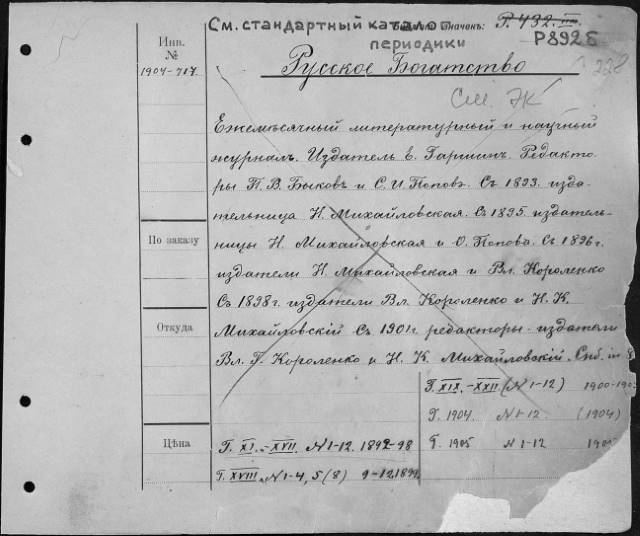 См. стандартный каталог
Значокъ: Р. 432.
периодики
Р892Б
Инв.
№
1904-717
Русское Богатство
228
См. ЭК
Ежемѣсячный литературный и научный
журналъ. Издатель Е. Гаршинъ. Редакто-
ры П. В. Быковъ и С. И. Поповъ. Съ 1893. изда-
тельница Н. Михайловская. Съ 1895. издатель-
ницы Н. Михайловская и О. Попова. Съ 1896 г.
издатели Н. Михайловская и Вл. Короленко
Съ 1898 г. издатели Вл. Короленко и Н. К.
Михайловскій Съ 1901 г. редакторы-издатели
Вл. Г. Короленко и Н. К. Михайловскій. Спб. in 8
По заказу
Откуда
Цѣна
Г. XIX.-XXII (N 1-12) 1900-190
Г. 1904. N 1-12 (1904)
Г. 1905 N 1-12 1905
Г. XI.-XVII. N 1-12. 1892-98
Г. XVIII N 1-4, 5 (8) 9-12.1899.